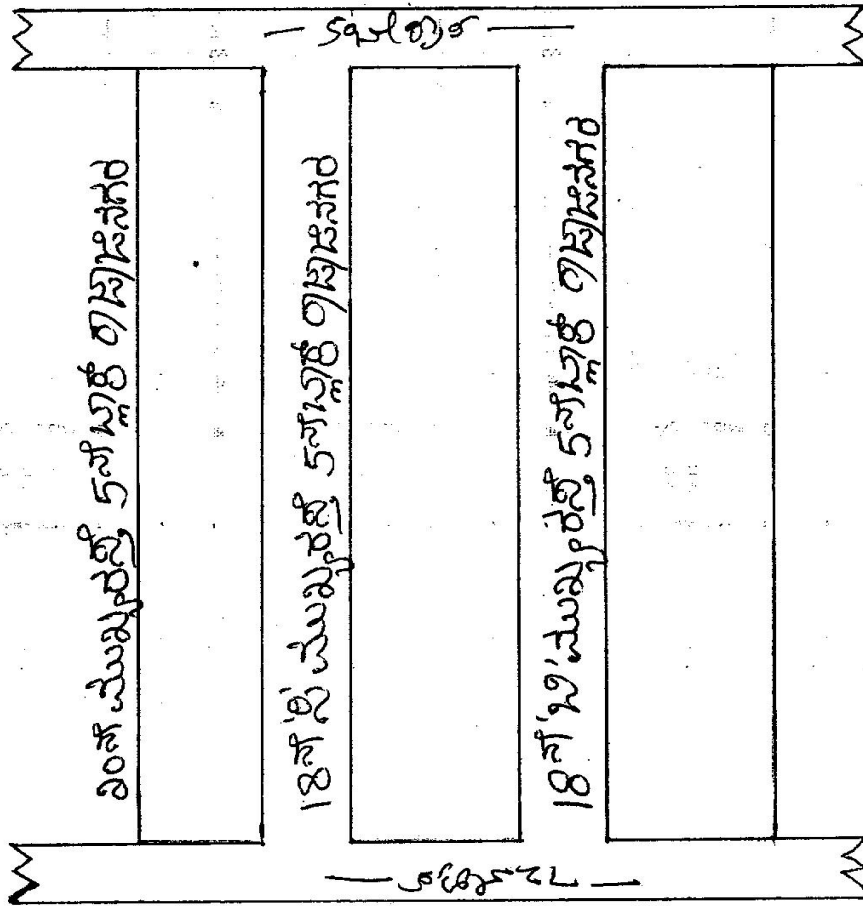 20ನೇ ಮುಖ್ಯರಸ್ತೆ 5ನೇ ಬ್ಲಾಕ್ ರಾಜಾಜಿನಗರ
18ನೇ 'ಸಿ' ಮುಖ್ಯರಸ್ತೆ 5ನೇ ಬ್ಲಾಕ್ ರಾಜಾಜಿನಗರ
18ನೇ 'ಬಿ' ಮುಖ್ಯರಸ್ತೆ 5ನೇ ಬ್ಲಾಕ್ ರಾಜಾಜಿನಗರ